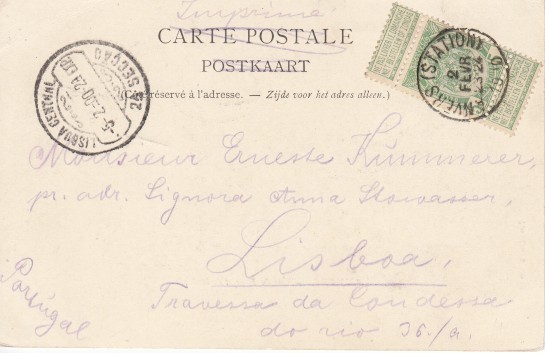 Imprimé
CARTE POSTALE
POSTKAART
(Côté réservé à l'adresse. — Zijde voor het adres alleen.)
ANVERS (STATION)
2
FEVR
LISBOA CENTRAL
2ª SECÇÃO
Monsieur Erneste Kümmerer,
pr. adr. Signora Anna Stowasser,
Lisboa.
Portugal
Travessa da Condessa
do rio 36./a.